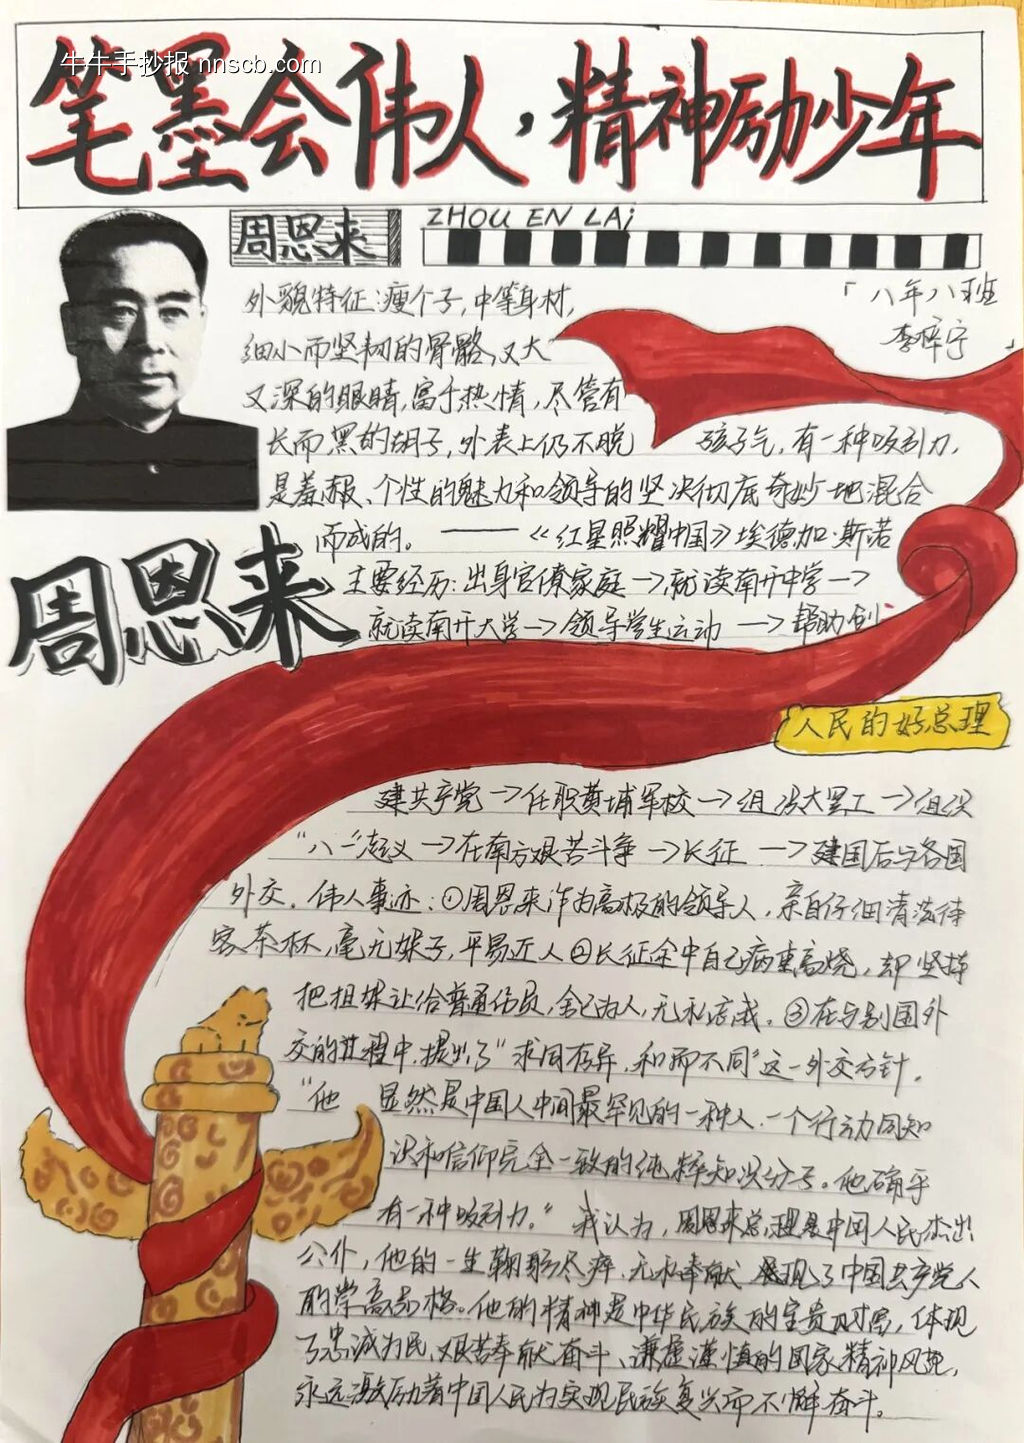 牛牛手抄报 nnscb.com
笔墨会伟人，精神励少年
周恩来
ZHOU EN LAi
「八年八班
李梓宁」
外貌特征：瘦个子，中等身材，
细小而坚韧的骨骼，又大
又深的眼睛，富于热情，尽管有
长而黑的胡子，外表上仍不脱 孩子气，有一种吸引力，
是羞赧、个性的魅力和领导的坚决彻底奇妙地混合
而成的。——《红星照耀中国》埃德加·斯诺
周恩来
主要经历：出身官僚家庭→就读南开中学→
就读南开大学→领导学生运动→帮助创
人民的好总理
建共产党→任职黄埔军校→组织大罢工→组织
"八一"起义→在南方艰苦斗争→长征→建国后与各国
外交。伟人事迹：①周恩来作为高极的领导人，亲自仔细清洗待
客茶杯，毫无架子，平易近人②长征途中自己病重高烧，却坚持
把担架让给普通伤员，舍己为人，无私忘我。③在与别国外
交的过程中，提出了"求同存异，和而不同"这一外交方针。
"他 显然是中国人中间最罕见的一种人，一个行动同知
识和信仰完全一致的纯粹知识分子。他确乎
有一种吸引力。"我认为，周恩来总理是中国人民杰出
公仆，他的一生鞠躬尽瘁，无私奉献展现了中国共产党人
的崇高品格。他的精神是中华民族的宝贵财富，体现
了忠诚为民、艰苦奉献奋斗、谦虚谨慎的国家精神风范，
永远激励着中国人民为实现民族复兴而不懈奋斗。